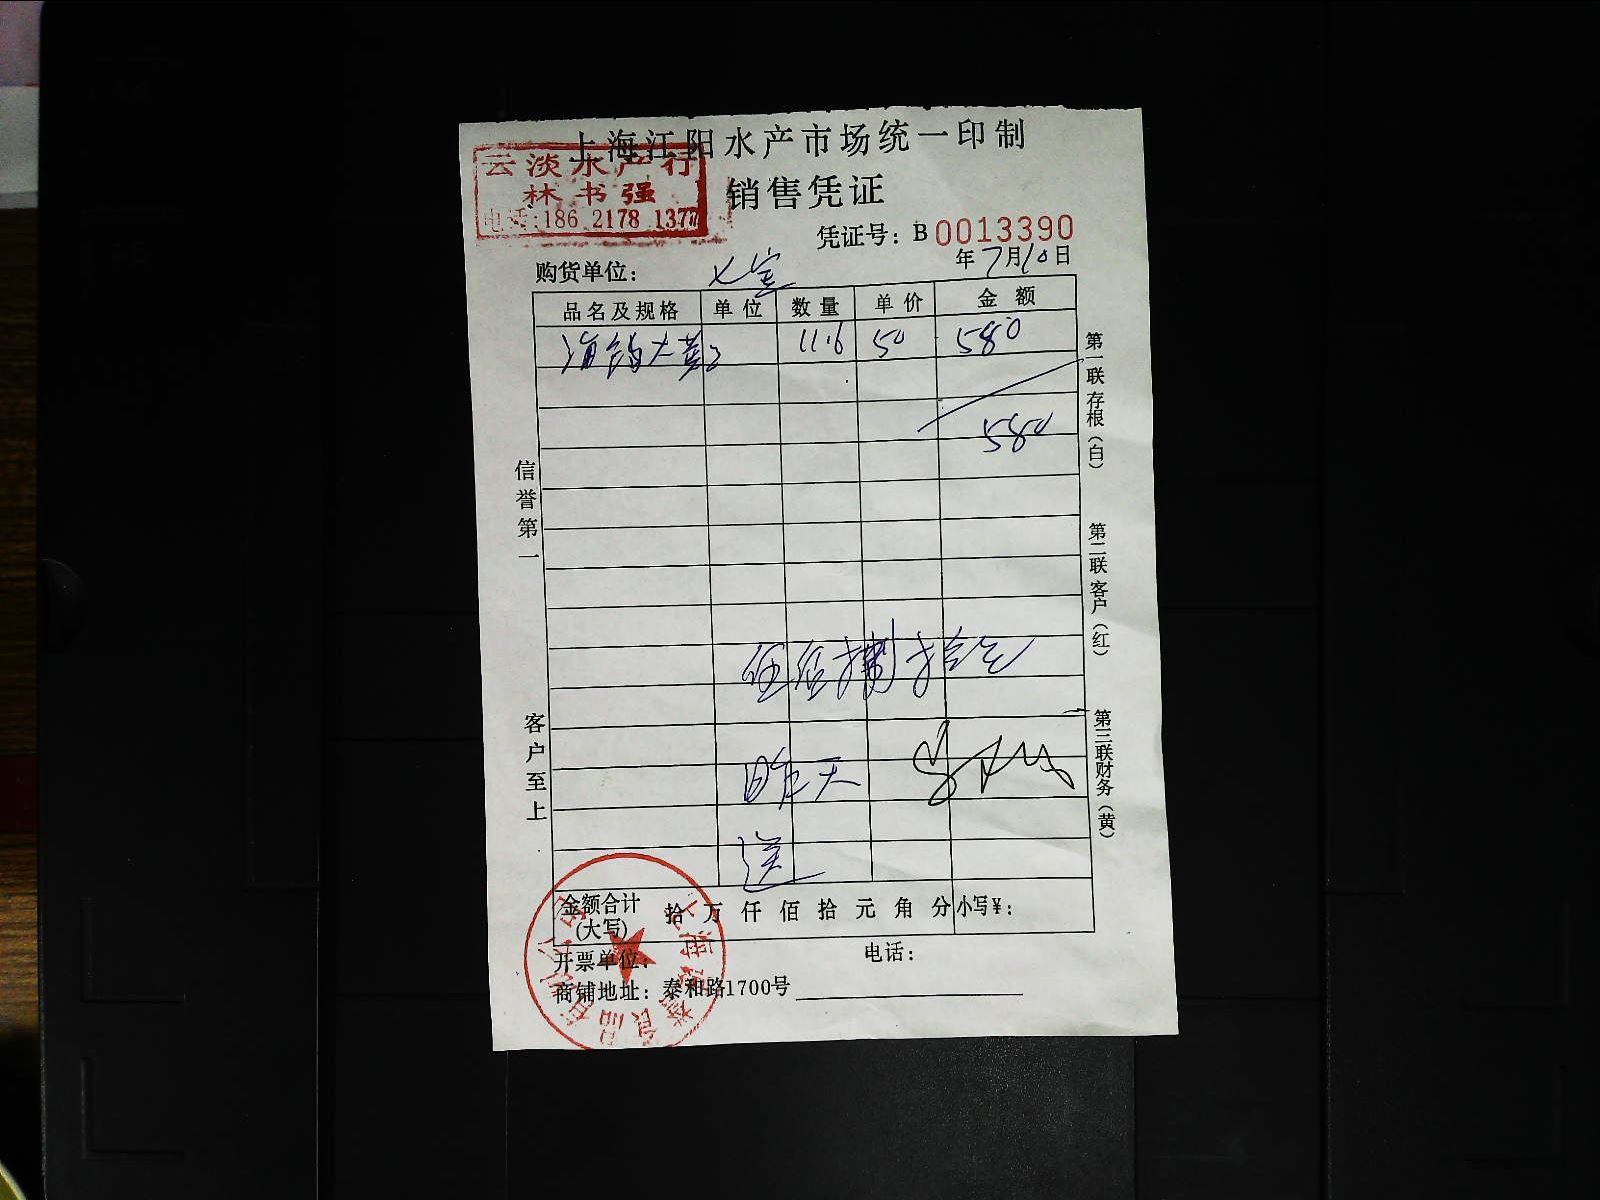 上海江阳水产市场统一印制
云淡水产行
林书强
电话:186 2178 1377
销售凭证
凭证号: B 0013390
年 7月10日
购货单位: 七宝
品名及规格 单位 数量 单价 金额
海钓大黄 11.6 50 580
580
信誉第一
客户至上
第一联存根(白)
第二联客户(红)
第三联财务(黄)
昨天
送
金额合计(大写) 拾 万 仟 佰 拾 元 角 分 小写¥:
开票单位: 电话:
商铺地址: 泰和路1700号